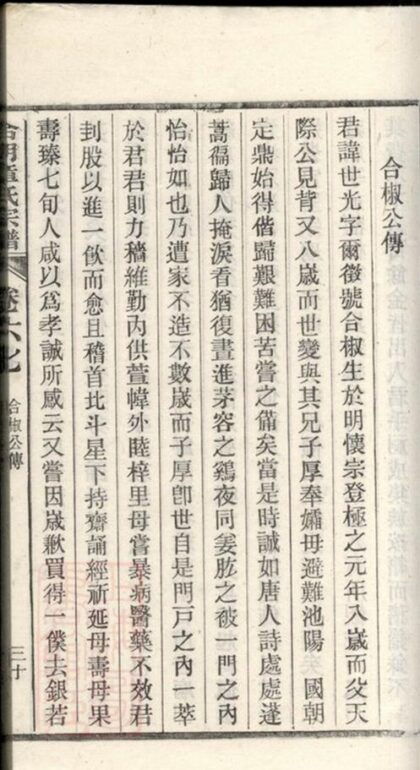 合椒公傳
君諱世光字爾徵號合椒生於明懷宗登極之元年八歲而父天
際公見背又八歲而世變與其兄子厚奉孀母避難池陽　國朝
定鼎始得偕歸艱難困苦嘗之備矣當是時誠如唐人詩處處蓬
蒿徧歸人掩淚看猶復晝進茅容之鷄夜同姜肱之被一門之內
怡怡如也乃遭家不造不數歲而子厚卽世自是門戶之內一萃
於君君則力穡維勤內供萱幃外睦梓里母嘗暴病醫藥不效君
刲股以進一飲而愈且稽首北斗星下持齋誦經祈延母壽母果
壽臻七旬人咸以爲孝誠所感云又嘗因歲歉買得一僕去銀若
氏宗譜
卷六七
合椒公傳
三十